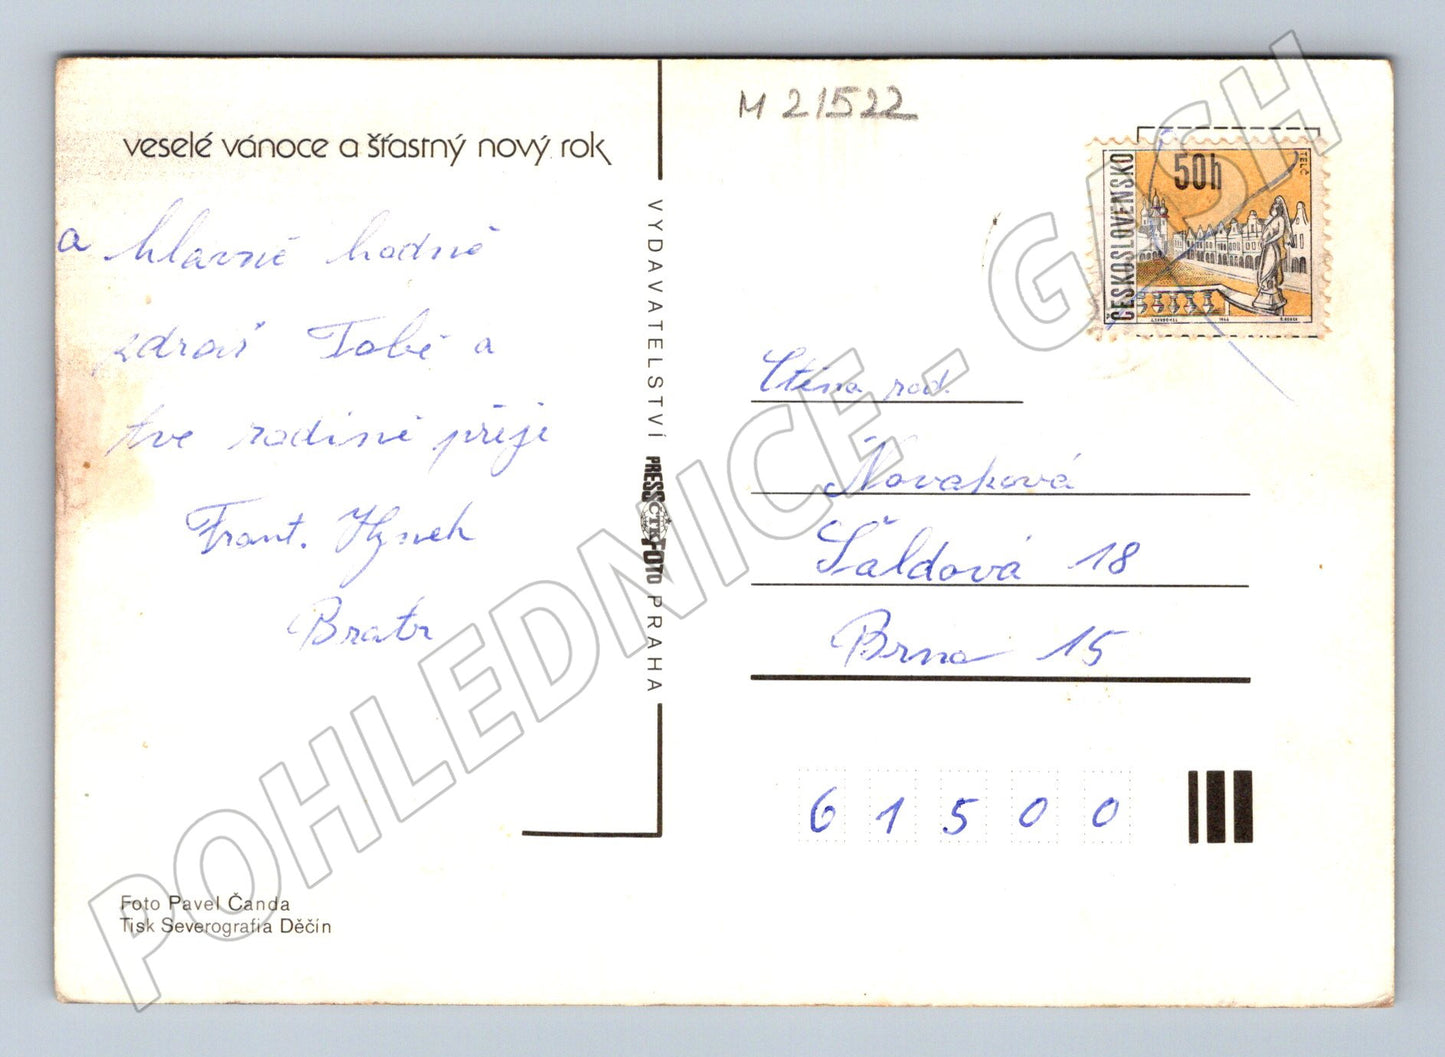 M 21522
veselé vánoce a šťastný nový rok
a hlavně hodně
zdraví Tobě a
tve rodině přeje
Frant. Hynek
Bratr
VYDAVATELSTVÍ PRESSFOTO PRAHA
ČTK
ČESKOSLOVENSKO
50h
TELČ
1966
Ctěna rod.
Novaková
Šaldová 18
Brno 15
61500
Foto Pavel Čanda
Tisk Severografia Děčín
POHLEDNICE - GASH